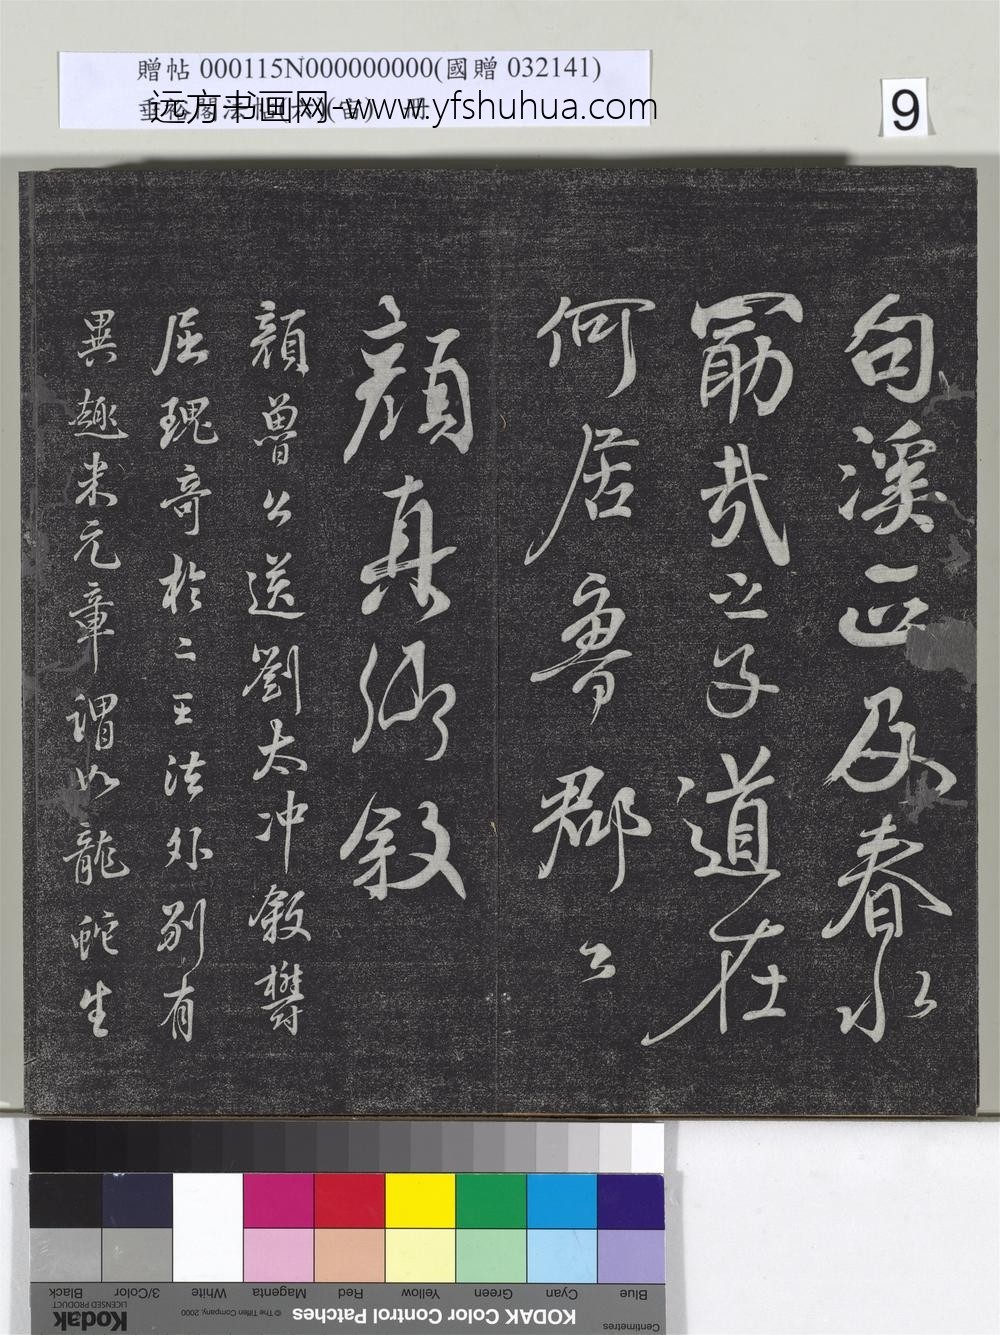 贈帖 000115N000000000(國贈 032141)
远方书画网-www.yfshuhua.com
9
句溪正及春水
勗哉之子道在
何居魯郡公
顏真卿敘
顏魯公送劉太冲叙鬱
屈瑰奇於二王法外別有
異趣米元章謂如龍蛇生
Blue
Cyan
Green
Yellow
Red
Magenta
White
3/Color
Black
Centimetres
KODAK Color Control Patches
© The Tiffen Company, 2000
Kodak
LICENSED PRODUCT